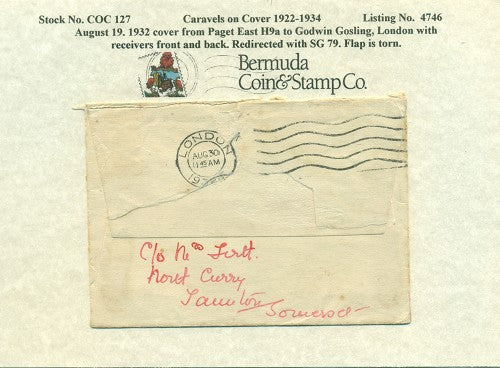 Stock No. COC 127 Caravels on Cover 1922-1934 Listing No. 4746
August 19. 1932 cover from Paget East H9a to Godwin Gosling, London with
receivers front and back. Redirected with SG 79. Flap is torn.
Bermuda
Coin&Stamp Co.
LONDON
AUG 30
AM
19
C/o Mrs
North Curry
Taunton
Somerset